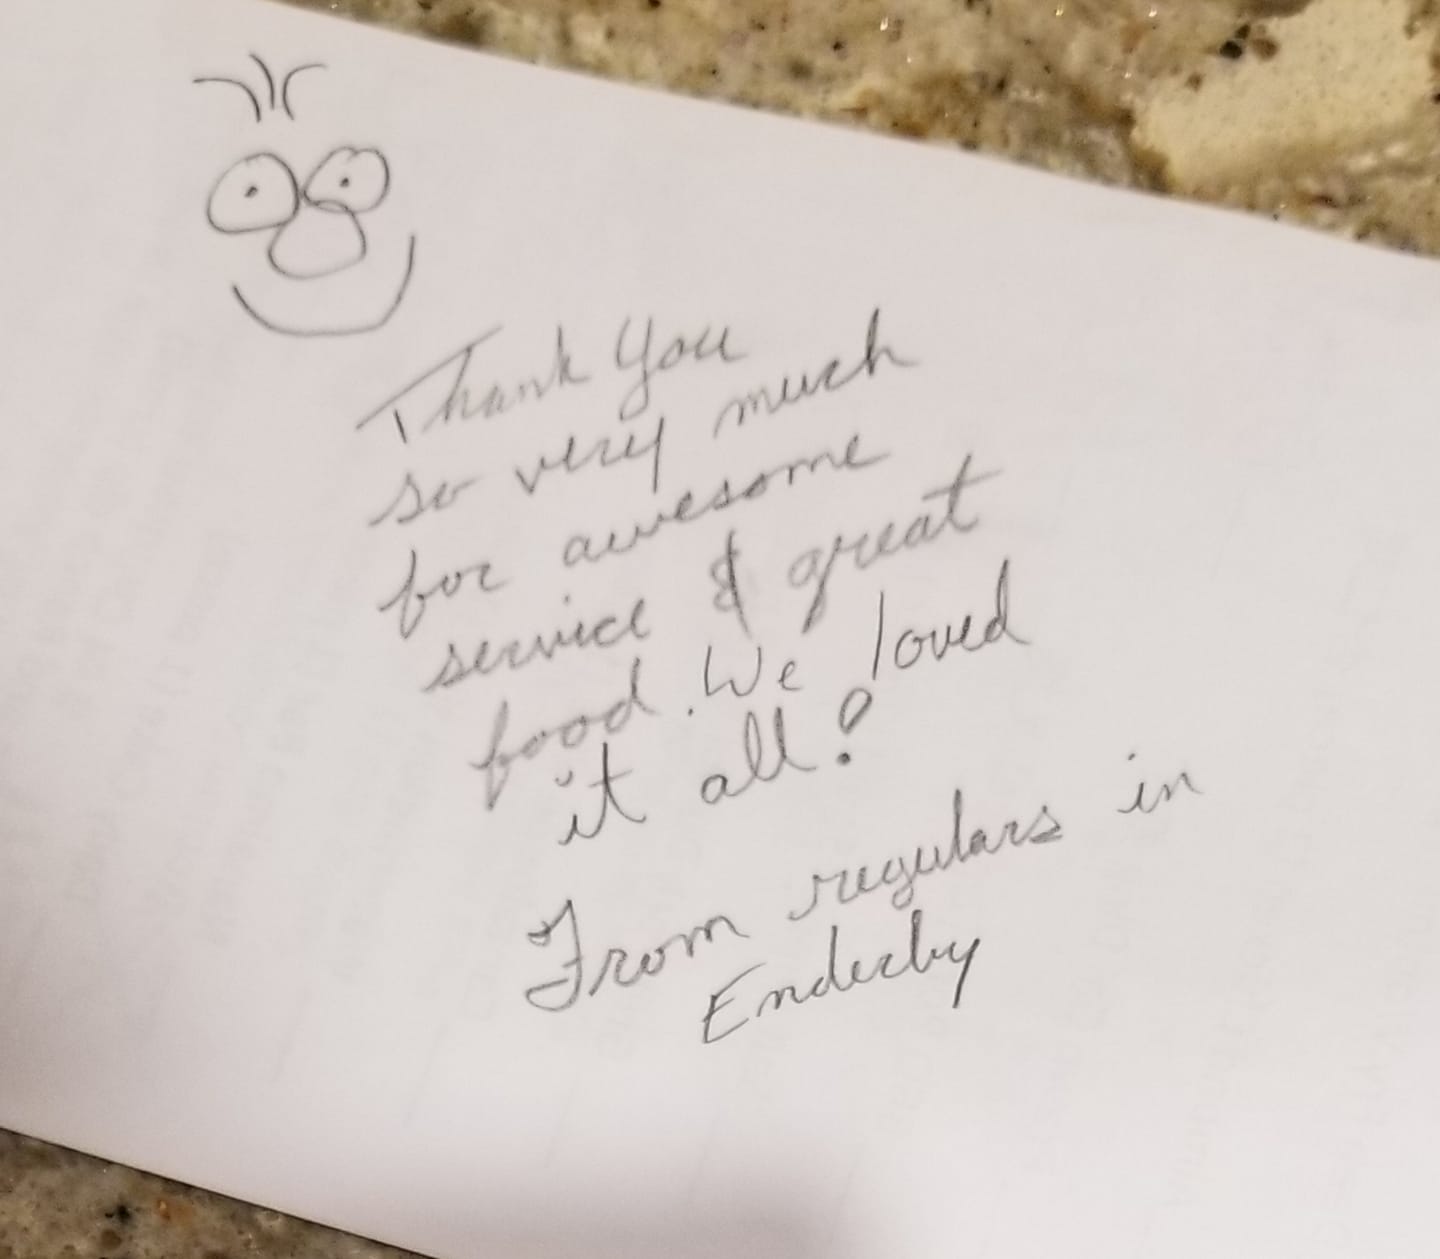 Thank You
so very much
for awesome
service & great
food. We loved
it all!
From regulars in
Enderby